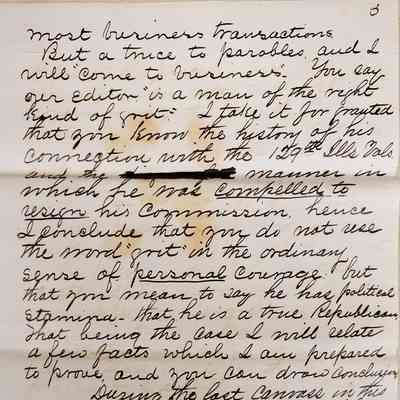 3
most business transactions
But a truce to parables, and I
will "come to business". You say
our Editor "is a man of the right
kind of grit." I take it for granted
that you know the history of his
connection with the 129th Ills Vols.
and the manner in
which he was compelled to
resign his Commission, hence
I conclude that you do not use
the word "grit" in the ordinary
sense of personal Courage but
that you mean to say he has political
stamina - that he is a true Republican
That being the case I will relate
a few facts which I am prepared
to prove and you can draw conclusions
During the last Canvass in this